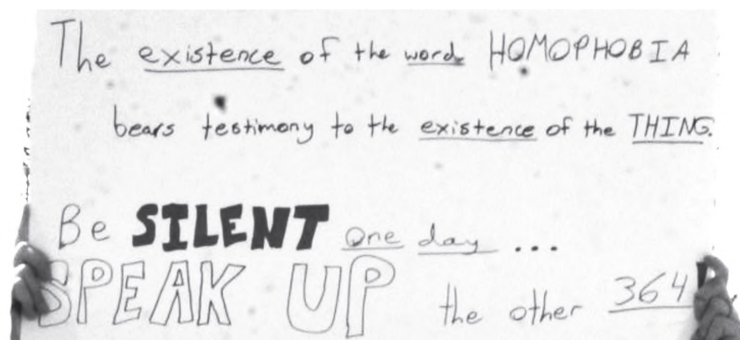 The existence of the word HOMOPHOBIA
bears testimony to the existence of the THING.
Be SILENT one day ...
SPEAK UP the other 364